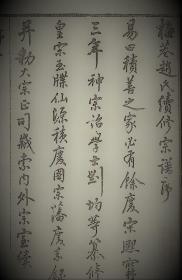 梅巷趙氏續修宗譜序
易曰積善之家必有餘慶宗興寶
三年神宗詔學士劉均等纂修
皇宗玉牒仙源積慶圖宗藩慶系錄
并勅大宗正司歲索内外宗室